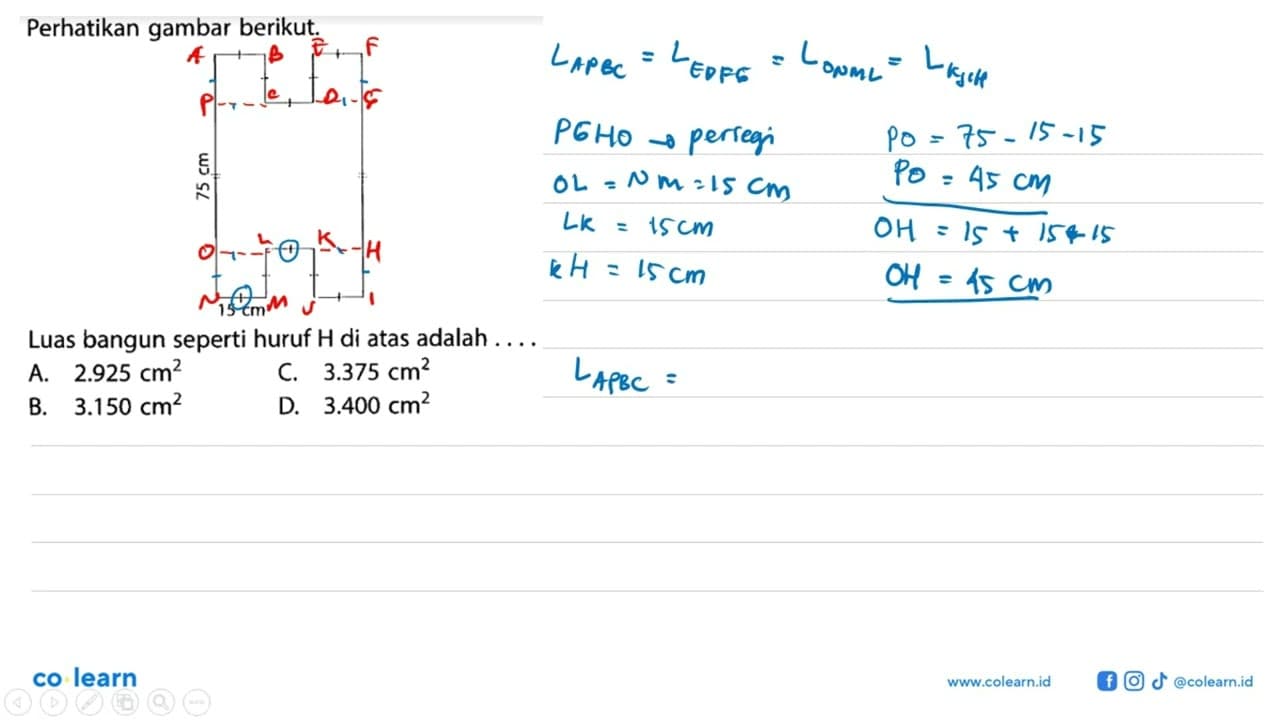 Perhatikan gambar berikut.
A B E F
P C D G
75 cm
O L K H
N M J I
15 cm
Luas bangun seperti huruf H di atas adalah . . . .
A. 2.925 cm² C. 3.375 cm²
B. 3.150 cm² D. 3.400 cm²
L APBC = L EDFG = L ONML = L KJIH
PGHO → persegi
OL = NM = 15 cm
LK = 15 cm
KH = 15 cm
PO = 75 - 15 - 15
PO = 45 cm
OH = 15 + 15 + 15
OH = 45 cm
L APBC =
co learn
www.colearn.id
@colearn.id